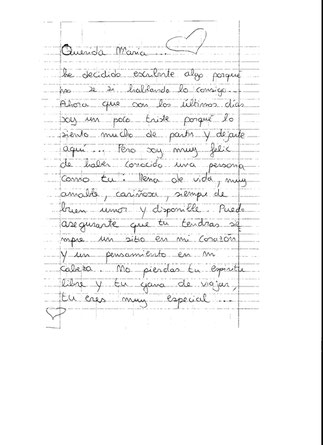 Querida Maria ...
he decidido escribirte algo porqué
no se si hablando lo consigo...
Ahora que son los últimos días
soy un poco triste porqué lo
siento mucho de partir y dejarte
aquí... Pero soy muy feliz
de haber conocido una persona
como tu: llena de vida, muy
amable, cariñosa, siempre de
buen umor y disponible. Puedo
asegurarte que tu tendras sie
mpre un sitio en mi corazón
y un pensamiento en mi
cabeza. No pierdas tu espiritu
libre y tu gana de viajar,
tu eres muy especial ...